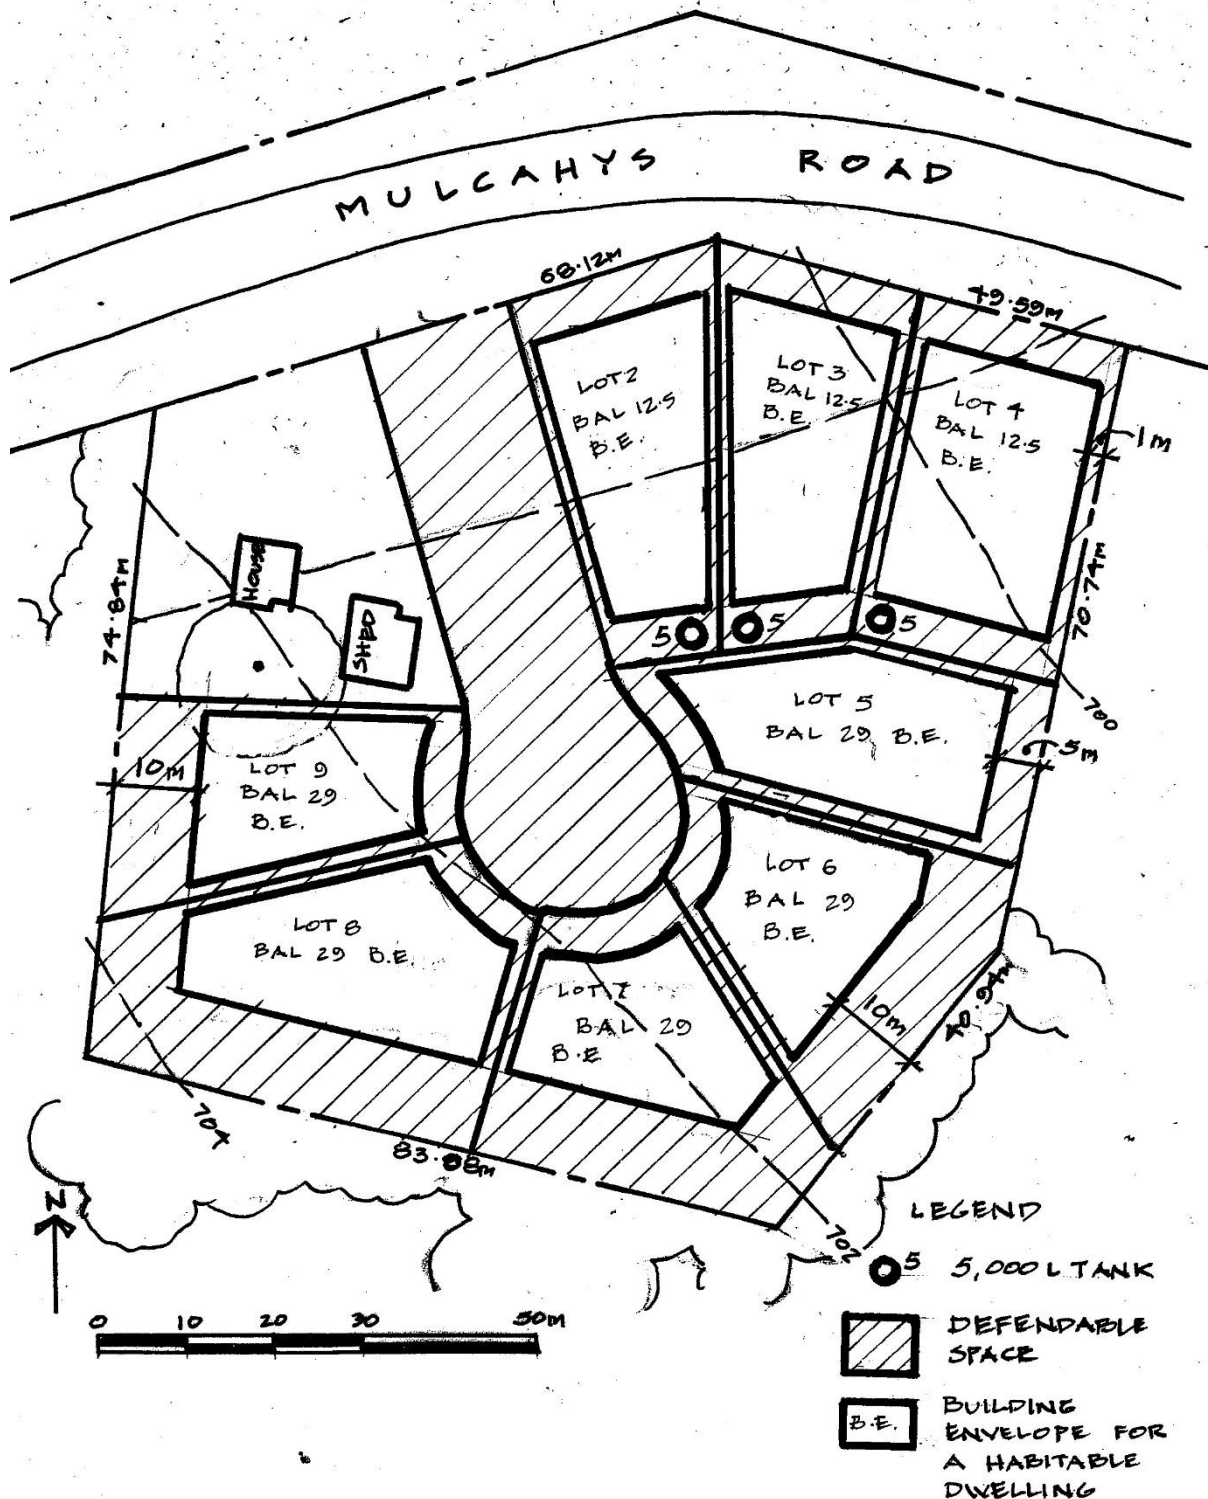 MULCAHYS ROAD
68.12m
49.59m
LOT 2
BAL 12.5
B.E.
LOT 3
BAL 12.5
B.E.
LOT 4
BAL 12.5
B.E.
1m
HOUSE
SHED
74.84m
70.74m
5
5
5
LOT 5
BAL 29 B.E.
700
5m
10m
LOT 9
BAL 29
B.E.
LOT 6
BAL 29
B.E.
LOT 8
BAL 29 B.E.
LOT 7
BAL 29
B.E
10m
704
702
N
0 10 20 30 50m
LEGEND
5 5,000 L TANK
DEFENDABLE
SPACE
B.E. BUILDING
ENVELOPE FOR
A HABITABLE
DWELLING